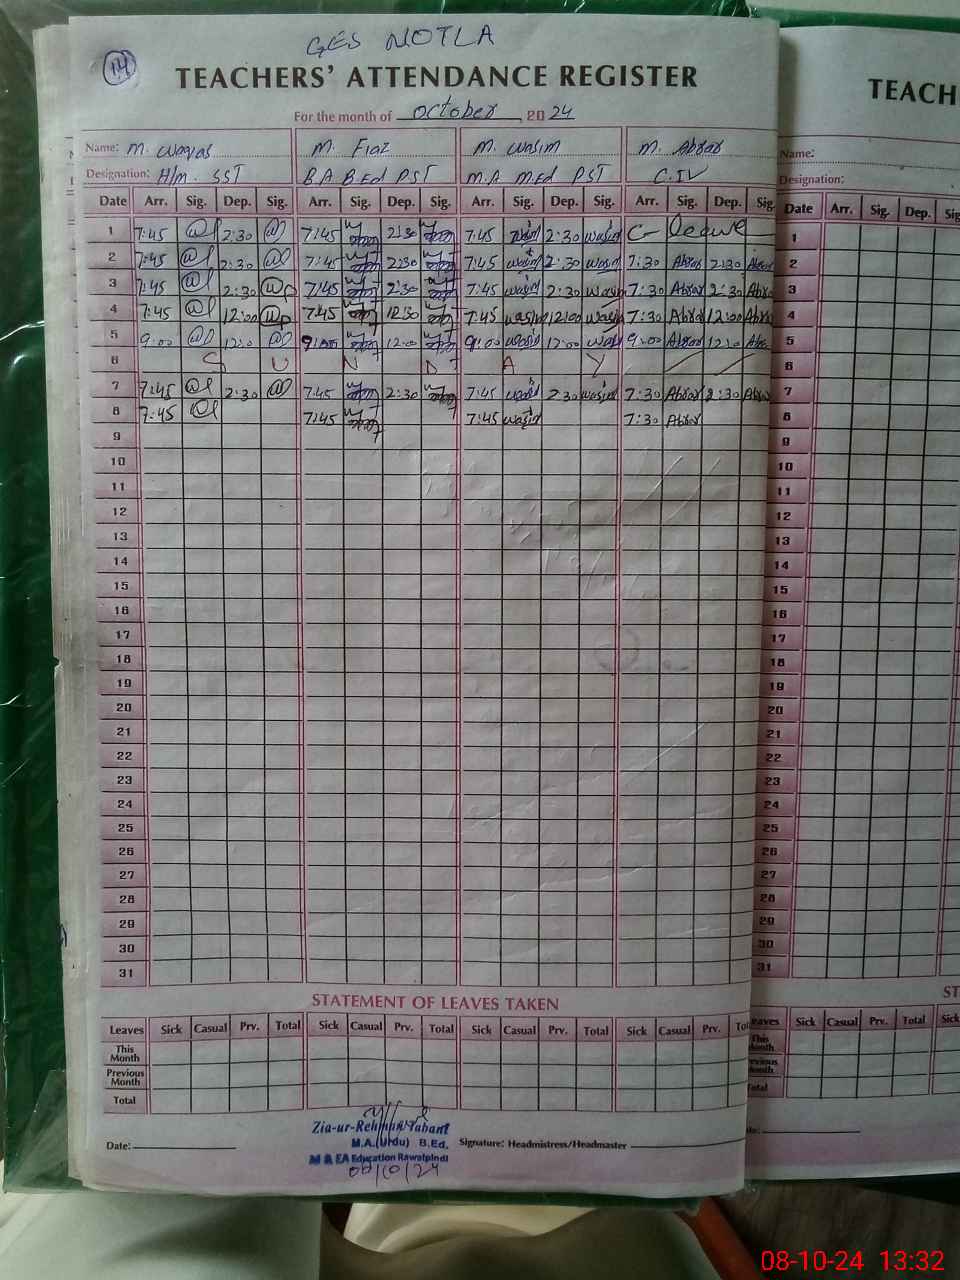 GES NOTLA
14
TEACHERS' ATTENDANCE REGISTER
TEACH
For the month of October, 2024
Name: M. Waqas M. Fiaz M. Wasim M. Abrar
Name:
Designation: H/M. SST B.A B.Ed PST M.A M.Ed PST C.IV
Designation:
Date Arr. Sig. Dep. Sig. Arr. Sig. Dep. Sig. Arr. Sig. Dep. Sig. Arr. Sig. Dep. Sig.
Date Arr. Sig. Dep. Sig
1 7:45 2:30 7:45 2:30 7:45 Wasim 2:30 Wasim C- leave
2 7:45 2:30 7:45 2:30 7:45 Wasim 2:30 Wasim 7:30 Abrar 2:30 Abrar
3 7:45 2:30 7:45 2:30 7:45 Wasim 2:30 Wasim 7:30 Abrar 2:30 Abra
4 7:45 12:00 7:45 7:45 Wasim 12:00 Wasim 7:30 Abrar 12:00 Abra
5 9:00 9:00 12:00 9:00 Wasim 12:00 Wasi 9:00 Abrar Abr
6 S U N D A Y
7 7:45 2:30 7:45 2:30 7:45 Wasim 2:30 Wasim 7:30 Abrar 2:30 Abrar
8 7:45 7:45 7:45 Wasim 7:30 Abrar
9
10
11
12
13
14
15
16
17
18
19
20
21
22
23
24
25
26
27
28
29
30
31
1
2
3
4
5
6
7
8
9
10
11
12
13
14
15
16
17
18
19
20
21
22
23
24
25
26
27
28
29
30
31
STATEMENT OF LEAVES TAKEN
ST
Leaves Sick Casual Prv. Total Sick Casual Prv. Total Sick Casual Prv. Total Sick Casual Prv. Tot
eaves Sick Casual Prv. Total Sick
This Month
Previous Month
Total
This Month
Total
Zia-ur-Rehman Tabani
M.A.(Urdu) B.Ed.
M & EA Education Rawalpindi
Date: Signature: Headmistress/Headmaster
08/10/24
08-10-24 13:32